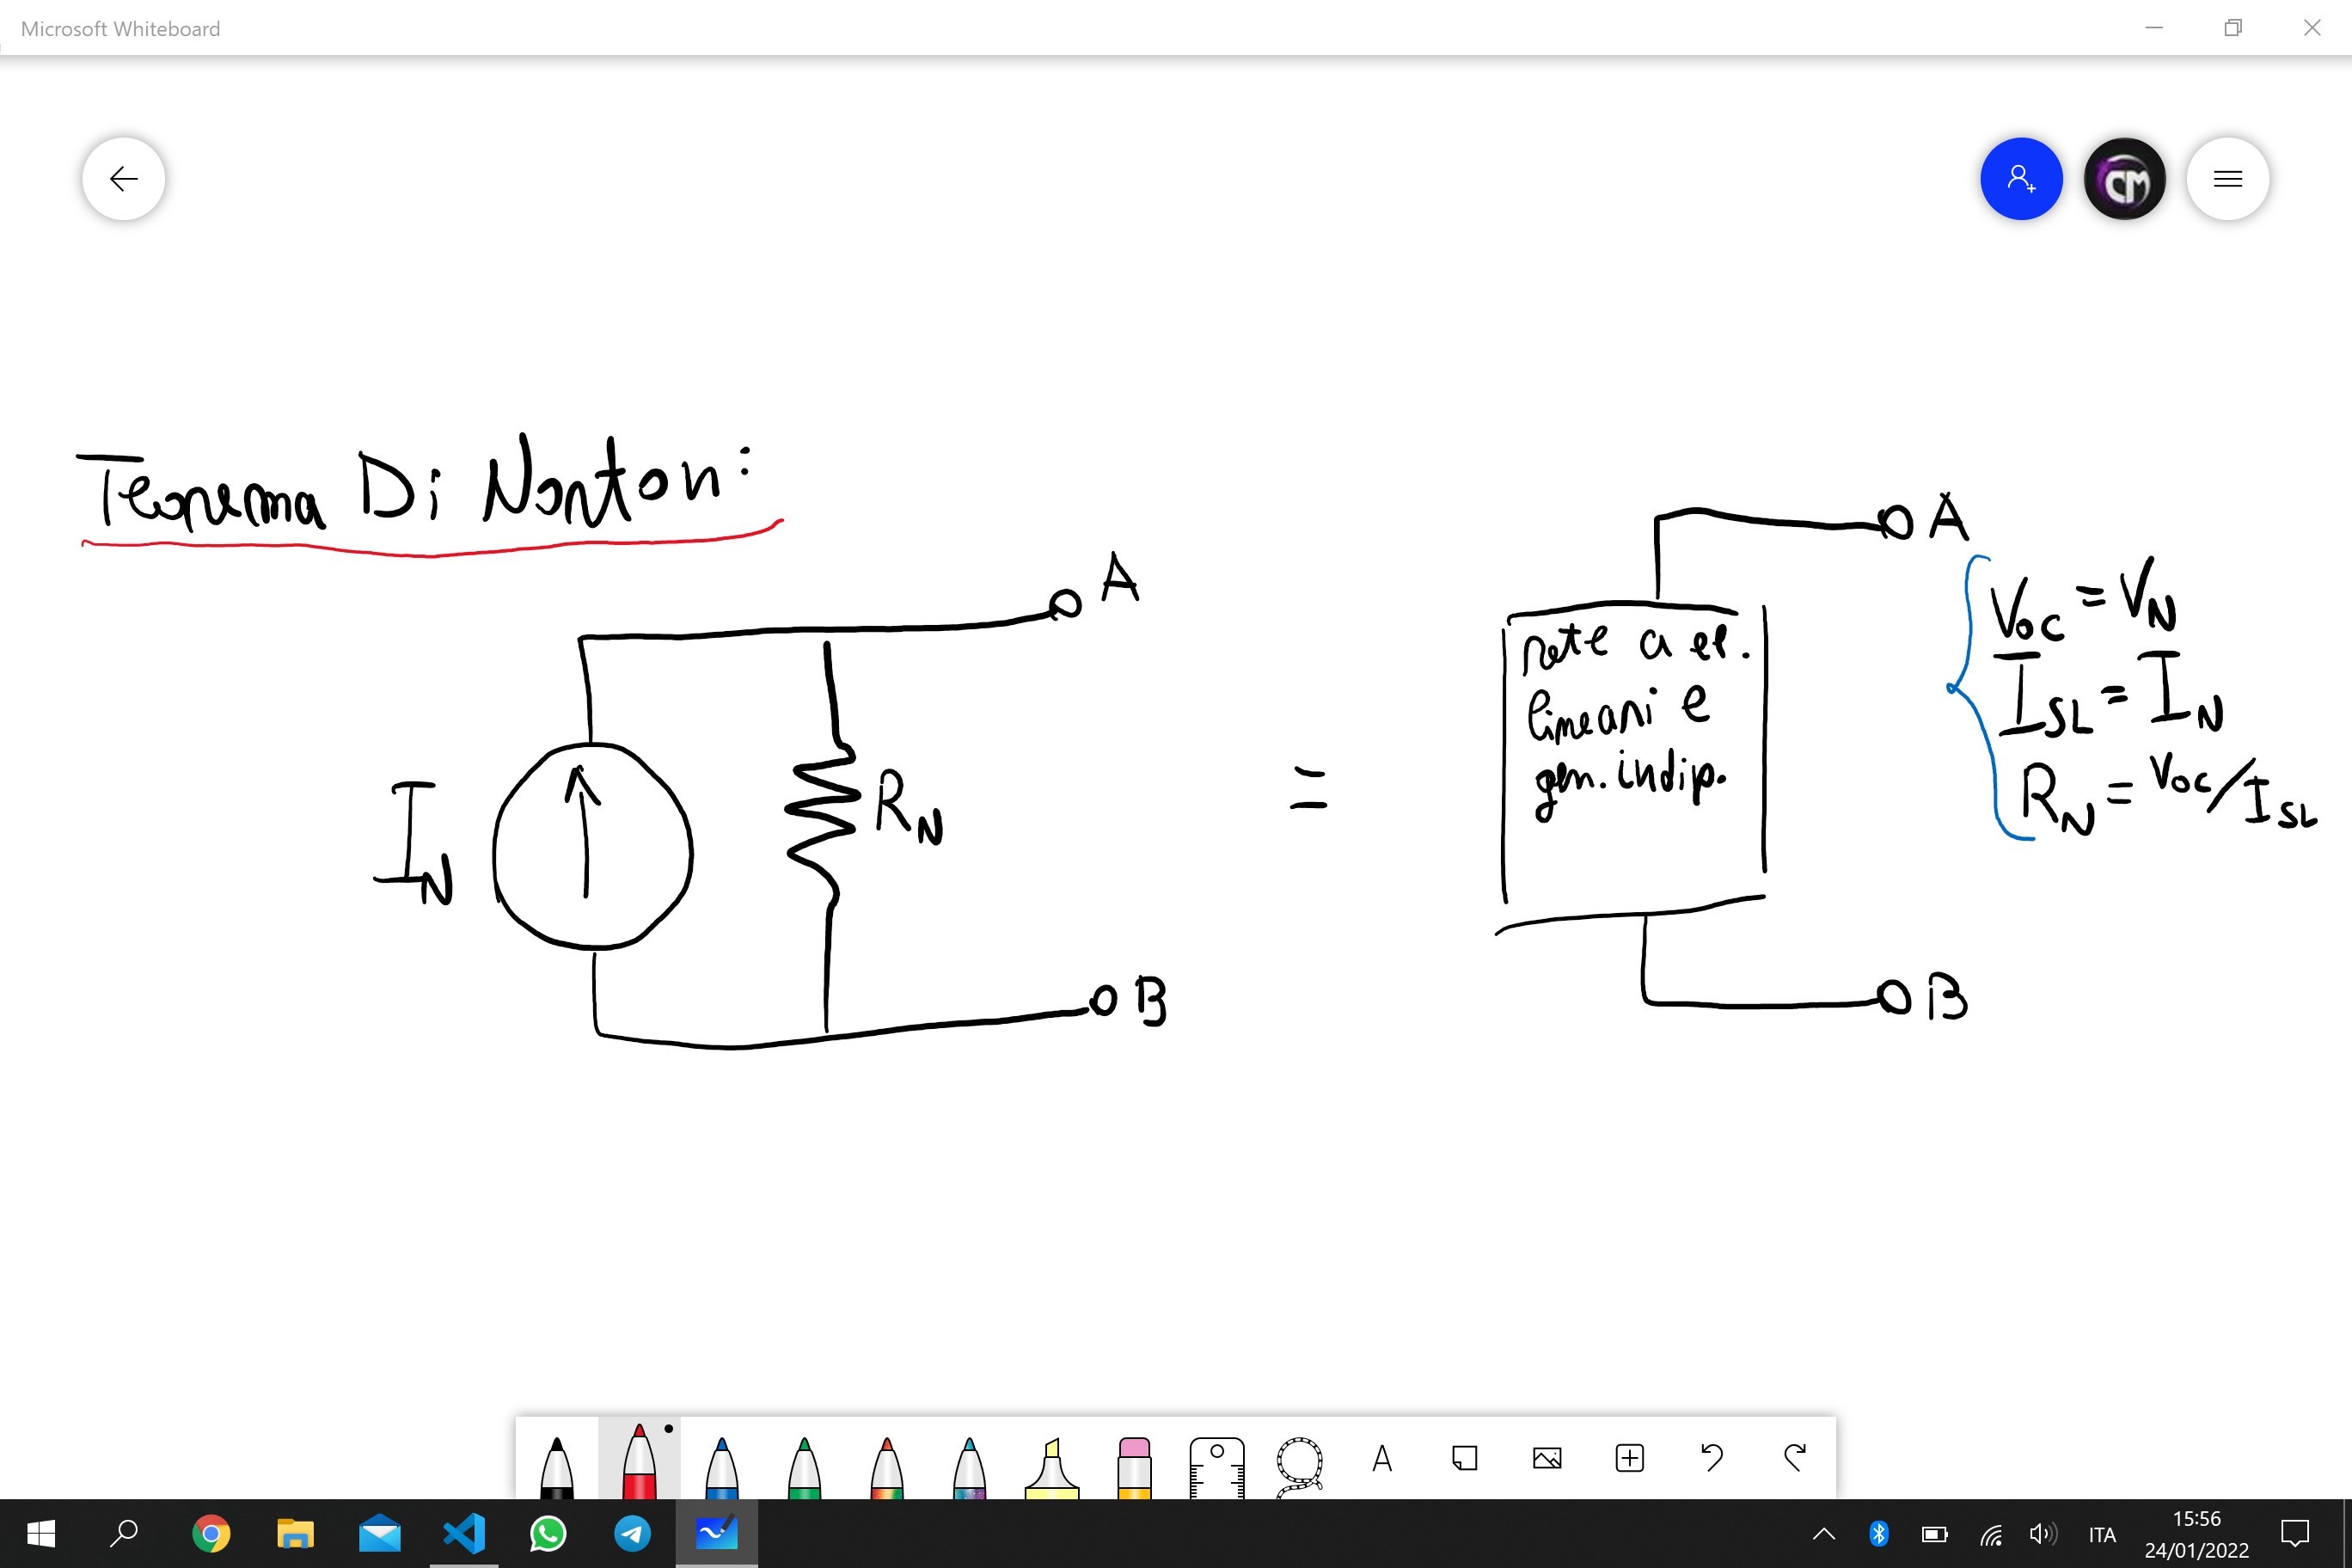 Microsoft Whiteboard
CM
Teorema Di Norton:
A
IN
RN
B
=
A
rete a el.
lineari e
gen. indip.
B
Voc = VN
ISL = IN
RN = Voc/ISL
A
ITA
15:56
24/01/2022